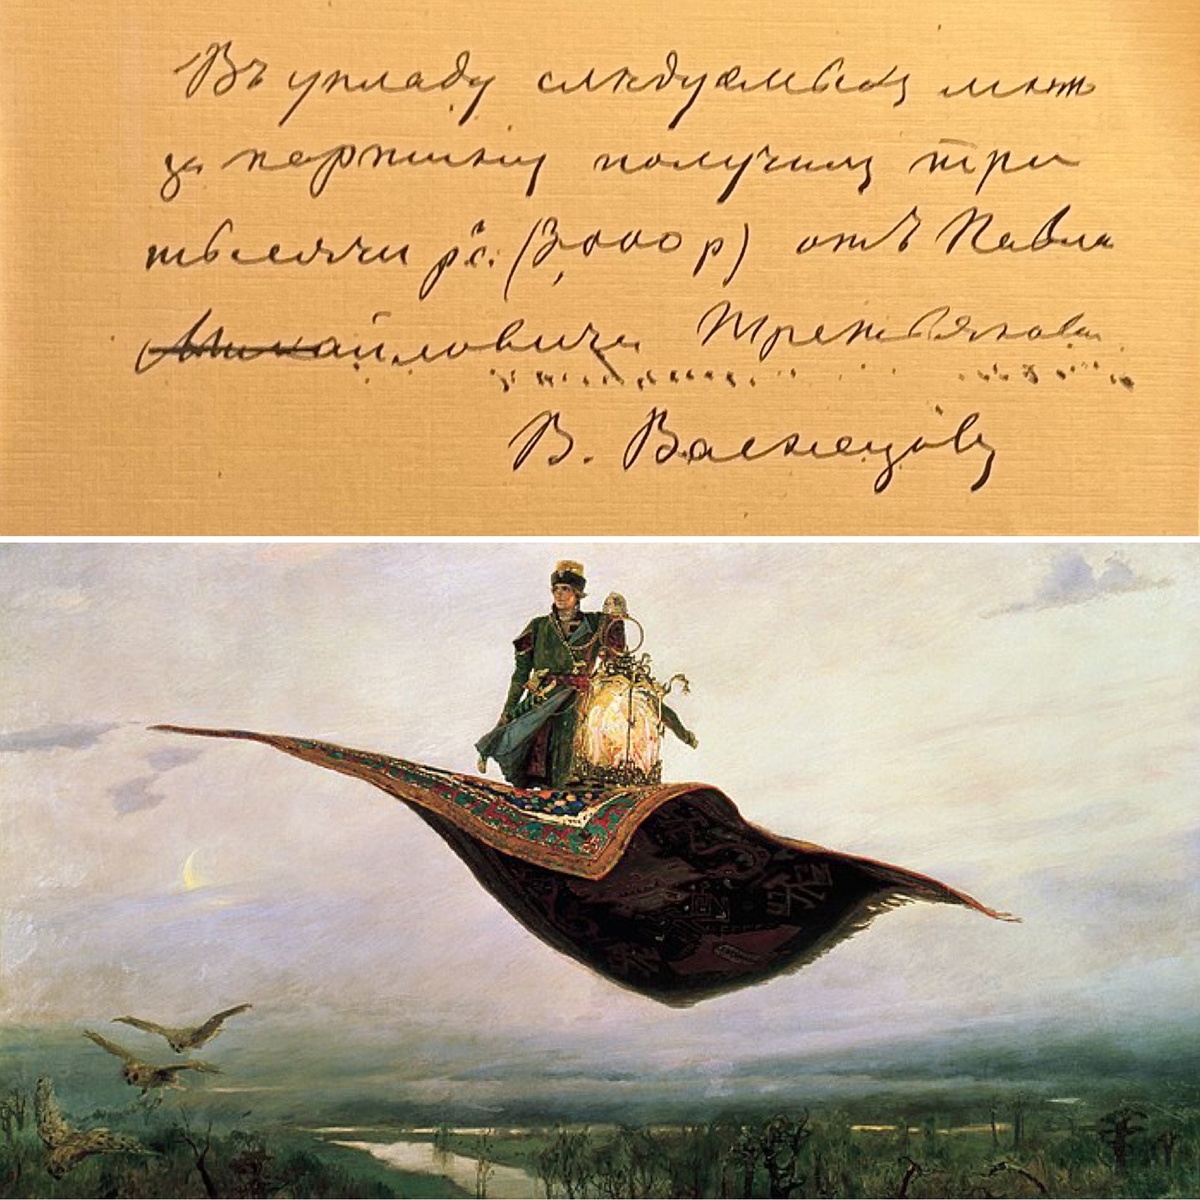 Въ уплату слѣдуемыхъ мнѣ
за картину получилъ три
тысячи р.с. (3,000 р) отъ Павла
Михайловича Третьякова
В. Васнецовъ